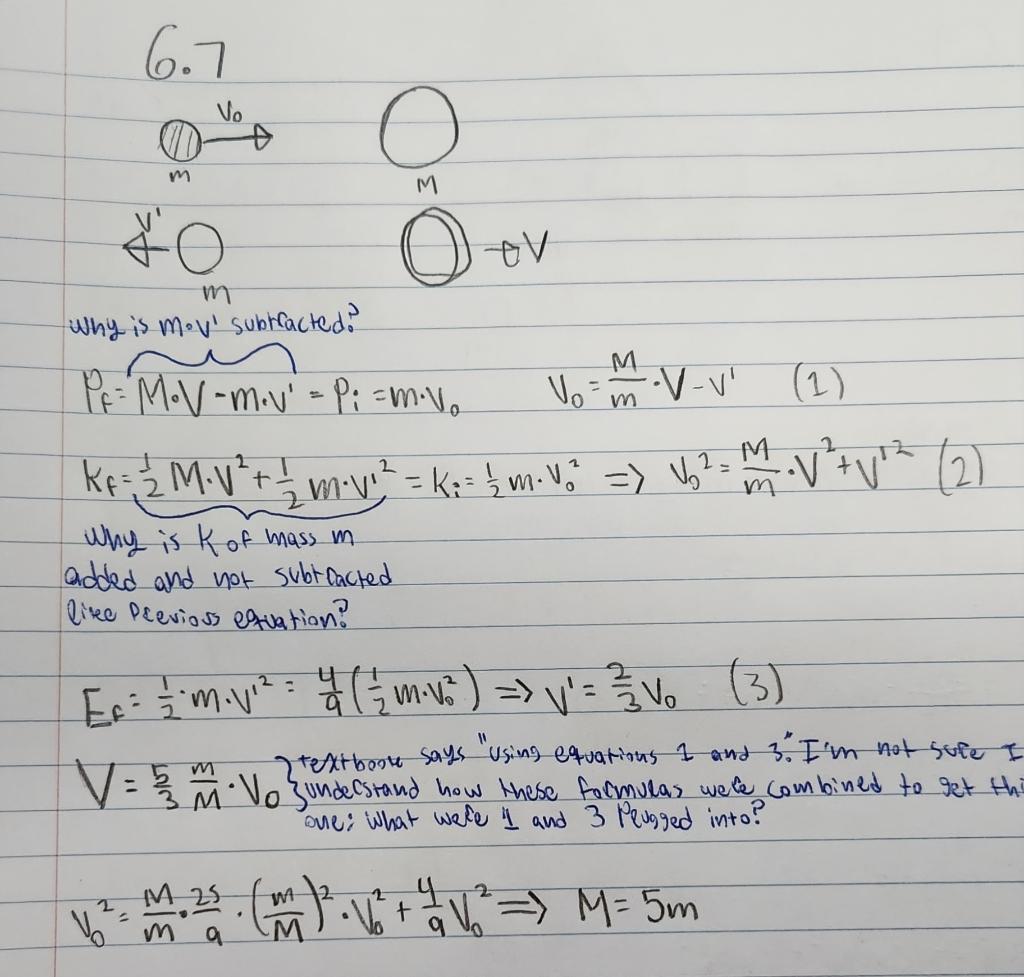 6.7
V₀
m M
V' V
m
Why is m·v' subtracted?
P_f = M·V - m·v' = P_i = m·V₀ V₀ = M/m · V - v' (1)
K_f = 1/2 M·V² + 1/2 m·v'² = K_i = 1/2 m·V₀² => V₀² = M/m · V² + V'² (2)
Why is K of mass m
added and not subtracted
like previoss equation?
E_f = 1/2 · m·v'² = 4/9 (1/2 m·V₀²) => v' = 2/3 V₀ (3)
V = 5/3 m/M · V₀ } textbook says "using equations 1 and 3." I'm not sure I
understand how these formulas were combined to get thi
one; What were 1 and 3 plugged into?
V₀² = M/m · 25/9 · (m/M)² · V₀² + 4/9 V₀² => M = 5m